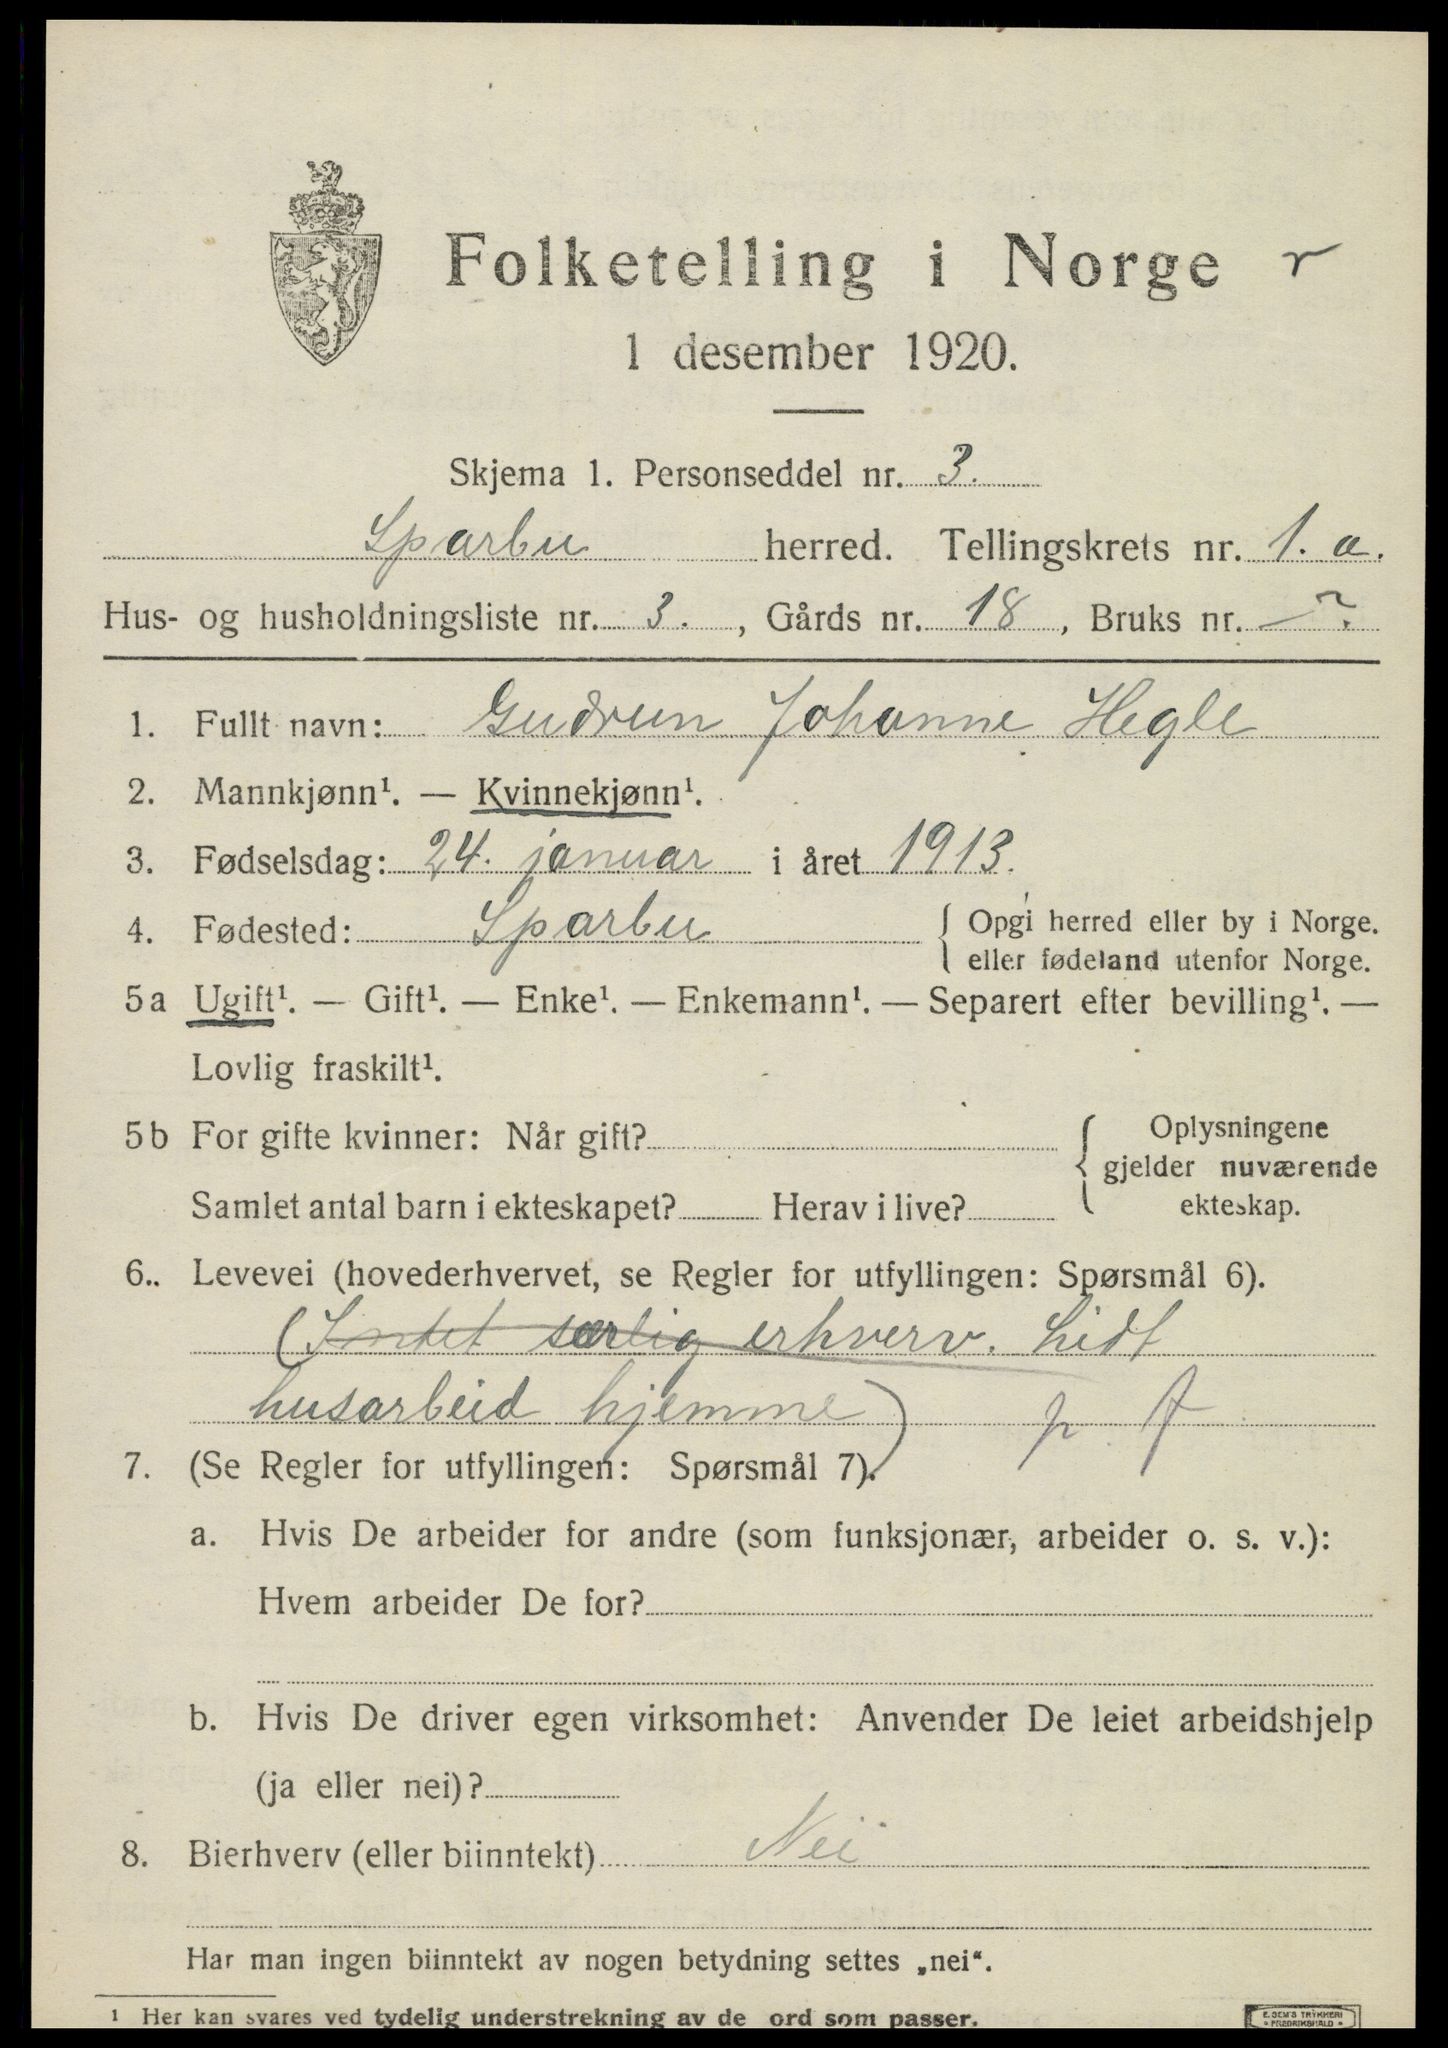 Folketelling i Norge
1 desember 1920.
Skjema 1. Personseddel nr. 3.
Sparbu herred. Tellingskrets nr. 1. a.
Hus- og husholdningsliste nr. 3. , Gårds nr. 18 , Bruks nr. — ?
1. Fullt navn: Gudrun Johanne Hegle
2. Mannkjønn¹. — Kvinnekjønn¹.
3. Fødselsdag: 24. januar i året 1913.
4. Fødested: Sparbu { Opgi herred eller by i Norge.
eller fødeland utenfor Norge.
5 a Ugift¹. — Gift¹. — Enke¹. — Enkemann¹. — Separert efter bevilling¹. —
Lovlig fraskilt¹.
5 b For gifte kvinner: Når gift? { Oplysningene
gjelder nuværende
Samlet antal barn i ekteskapet? Herav i live? ekteskap.
6.. Levevei (hovederhvervet, se Regler for utfyllingen: Spørsmål 6).
(Intet særlig erhverv. Lidt
husarbeid hjemme) p. f
7. (Se Regler for utfyllingen: Spørsmål 7).
a. Hvis De arbeider for andre (som funksjonær, arbeider o. s. v.):
Hvem arbeider De for?
b. Hvis De driver egen virksomhet: Anvender De leiet arbeidshjelp
(ja eller nei)?
8. Bierhverv (eller biinntekt) Nei
Har man ingen biinntekt av nogen betydning settes „nei“.
¹ Her kan svares ved tydelig understrekning av de ord som passer.
E. SEM'S TRYKKERI
FREDRIKSHALD